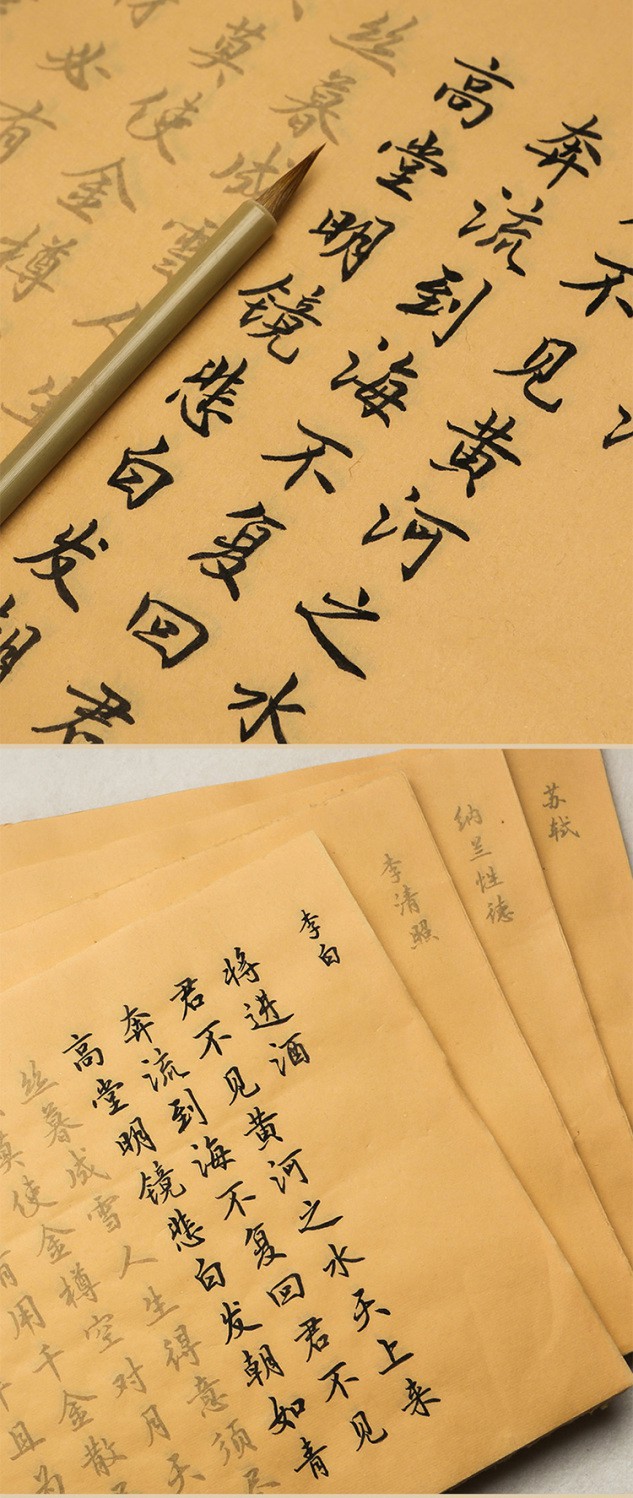 不见黄河之水
奔流到海不复回君
高堂明镜悲白发朝
丝暮成雪人生
莫使金樽
必有
苏轼
纳兰性德
李清照
李白
将进酒
君不见黄河之水天上来
奔流到海不复回君不见
高堂明镜悲白发朝如青
丝暮成雪人生得意须尽
莫使金樽空对月天
有用千金散
且为